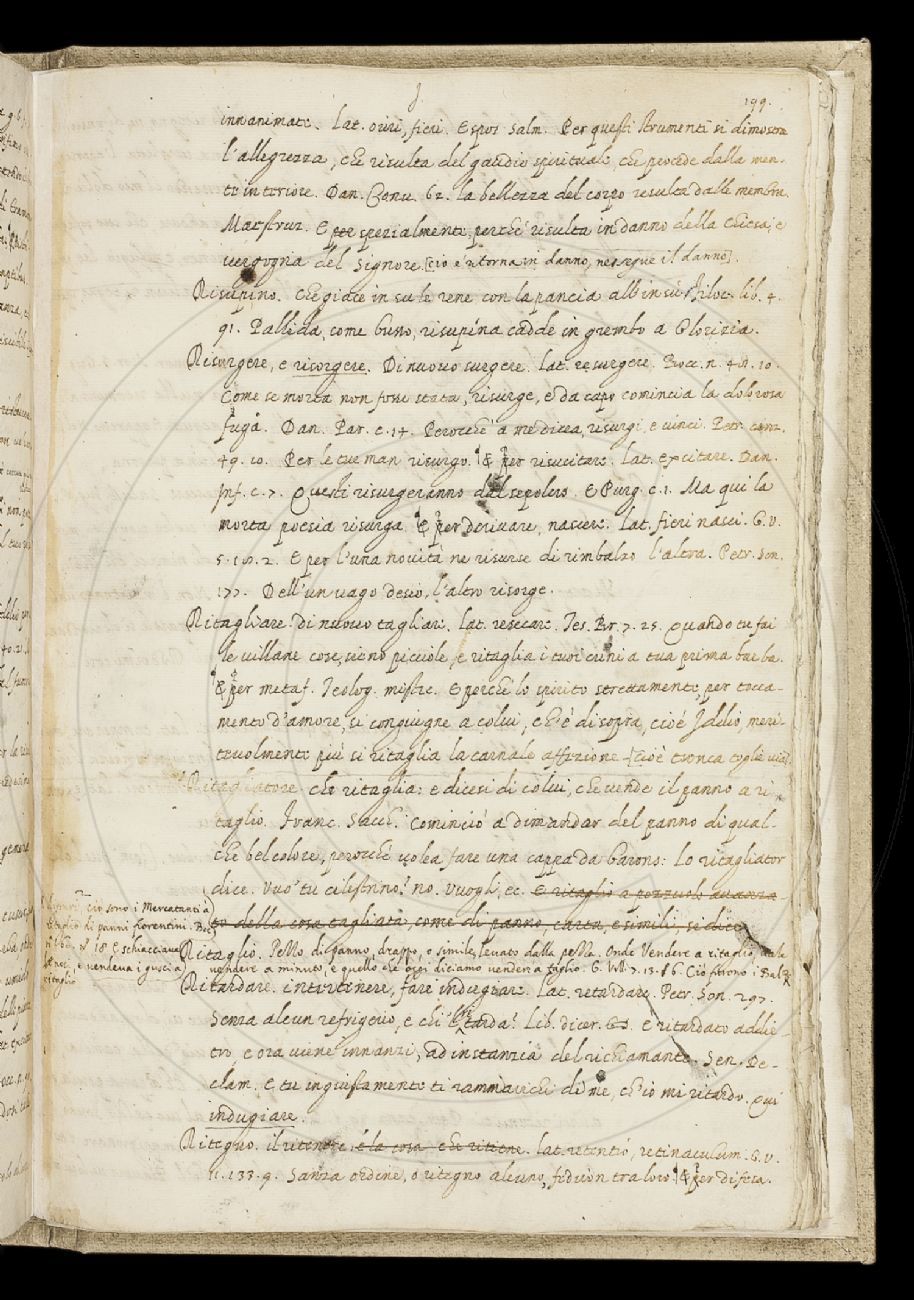 199.
innanimate. Lat. oriri, fieri. Espos. Salm. Per questi strumenti si dimostra
l'allegrezza, che risulta del gaudio spirituale, che procede dalla men-
te interiore. Dan. Conv. 62. la bellezza del corpo resulta dalle membra.
Maestruz. E per spezialmente, perché risulta in danno della chiesa, e
vergogna del Signore [cio è ritorna in danno, ne segue il danno].
Risupino. Che giace in su le rene con la pancia all'in sù. Filoc. lib. 4.
91. Pallida, come busso, risupina cadde in grembo a Glorizia.
Risurgere, e risorgere. Di nuovo surgere. Lat. resurgere. Bocc. n. 48. 10.
Come se morta non fosse stata, risurge, e da capo comincia la dolorosa
fuga. Dan. Par. c. 14. Perocchè a me dicea, risurgi, e vinci. Petr. canz.
49. 10. Per le tue man risurgo. & per risucitare. Lat. excitare. Dan.
Inf. c. 7. Questi risurgeranno dal sepolcro. E Purg. c. 1. Ma qui la
morta poesia risurga & per derivare, nascere. Lat. fieri nasci. G. V.
5. 10. 2. E per l'una novità ne risurse di rimbalzo l'altra. Petr. Son.
177. Dell'un vago desio, l'altro risorge.
Ritagliare. di nuovo tagliare. Lat. resecare. Tes. Br. 7. 25. Quando tu fai
le villane cose, sieno picciole, e ritaglia i tuoi crini a tua prima barba.
& per metaf. Teolog. mistic. E perchè lo spirito strettamente, per tocca-
mento d'amore, si congiugne a colui, ch'è di sopra, cioè Iddio, meri-
tevolmente più si ritaglia la carnale affezione. [cioè tronca toglie via]
Ritagliatore che ritaglia: e dicesi di colui, che vende il panno a ri-
taglio. Franc. Sacch. Cominciò a dimandar del panno di qual-
che bel colore, perocchè volea fare una cappa da barons: Lo ritagliator
dice. Vuo' tu cilestrino? no. Vuogli, ec. E ritaglio a pezzuolo avanza
to della cosa tagliata, come di panno, carta, e simili, si dice
Ritaglio. Pezzo di panno, drappo, o simile, levato dalla pezza. Onde Vendere a ritaglio, vale
vendere a minuto, e quello che oggi diciamo vender a taglio. G. Vill. 7. 13. 86. Ciò furono i Bal
ciò sono i Mercatanti a
ritaglio di panni fiorentini. Bocc.
18. E schiacciava
noci, e vendeva i gusci a
ritaglio
Ritardare. intertenere, fare indugiare. Lat. retardare. Petr. Son. 297.
Senza alcun refrigerio, e chi tarda? Lib. dicer. G. S. e ritardato addie-
tro, e ora viene innanzi, ad instanzia del richiamante. Sen. De-
clam. E tu ingiustamente ti rammarichi di me, ch'io mi ritardo. Qui
indugiare.
Ritegno. il ritenere, e la cosa che ritiene. lat. retentio, retinaculum. G. V.
11. 133. 9. Sanza ordine, o ritegno alcuno, fedion tra loro. & per difesa.